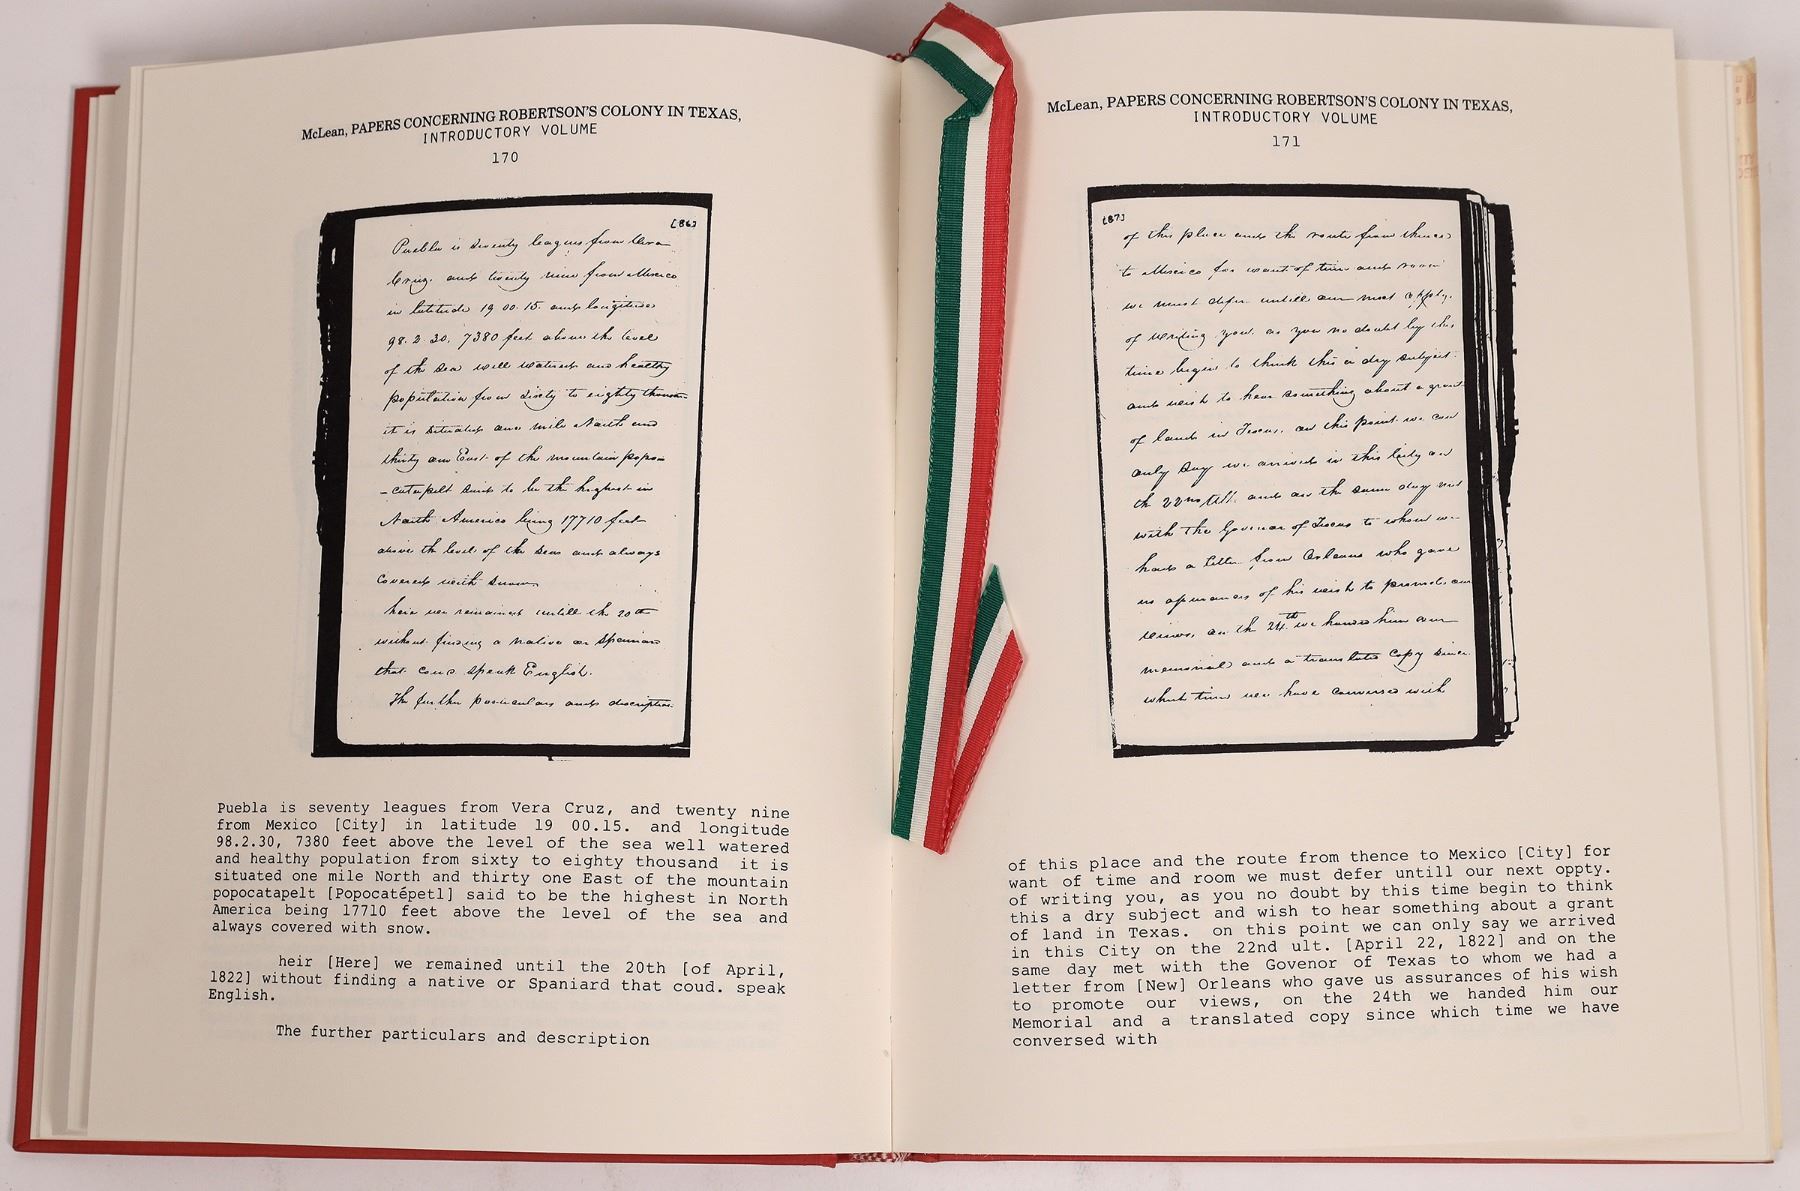 McLean, PAPERS CONCERNING ROBERTSON'S COLONY IN TEXAS,
INTRODUCTORY VOLUME
170
[86]
Puebla is seventy leagues from Vera
Cruz, and twenty nine from Mexico
in latitude 19 00.15. and longitude
98.2.30, 7380 feet above the level
of the sea well watered and healthy
population from sixty to eighty thousan
it is situated one mile North and
thirty one East of the mountain popo
-catapelt said to be the highest in
North America being 17710 feet
above the level of the sea and always
covered with snow
heir we remained untill the 20th
without finding a native or Spaniard
that coud. speak English.
The further particulars and description
Puebla is seventy leagues from Vera Cruz, and twenty nine
from Mexico [City] in latitude 19 00.15. and longitude
98.2.30, 7380 feet above the level of the sea well watered
and healthy population from sixty to eighty thousand it is
situated one mile North and thirty one East of the mountain
popocatapelt [Popocatépetl] said to be the highest in North
America being 17710 feet above the level of the sea and
always covered with snow.
heir [Here] we remained until the 20th [of April,
1822] without finding a native or Spaniard that coud. speak
English.
The further particulars and description
McLean, PAPERS CONCERNING ROBERTSON'S COLONY IN TEXAS,
INTRODUCTORY VOLUME
171
[87]
of this place and the route from thence
to Mexico for want of time and room
we must defer untill our next oppty.
of writing you, as you no doubt by this
time begin to think this a dry subject
and wish to hear something about a grant
of land in Texas, on this point we can
only say we arrived in this City on
the 22nd ult. and on the same day met
with the Govenor of Texas to whom we
had a letter from Orleans who gave
us assurances of his wish to promote our
views, on the 24th we handed him our
memorial and a translated copy since
which time we have conversed with
of this place and the route from thence to Mexico [City] for
want of time and room we must defer untill our next oppty.
of writing you, as you no doubt by this time begin to think
this a dry subject and wish to hear something about a grant
of land in Texas. on this point we can only say we arrived
in this City on the 22nd ult. [April 22, 1822] and on the
same day met with the Govenor of Texas to whom we had a
letter from [New] Orleans who gave us assurances of his wish
to promote our views, on the 24th we handed him our
Memorial and a translated copy since which time we have
conversed with